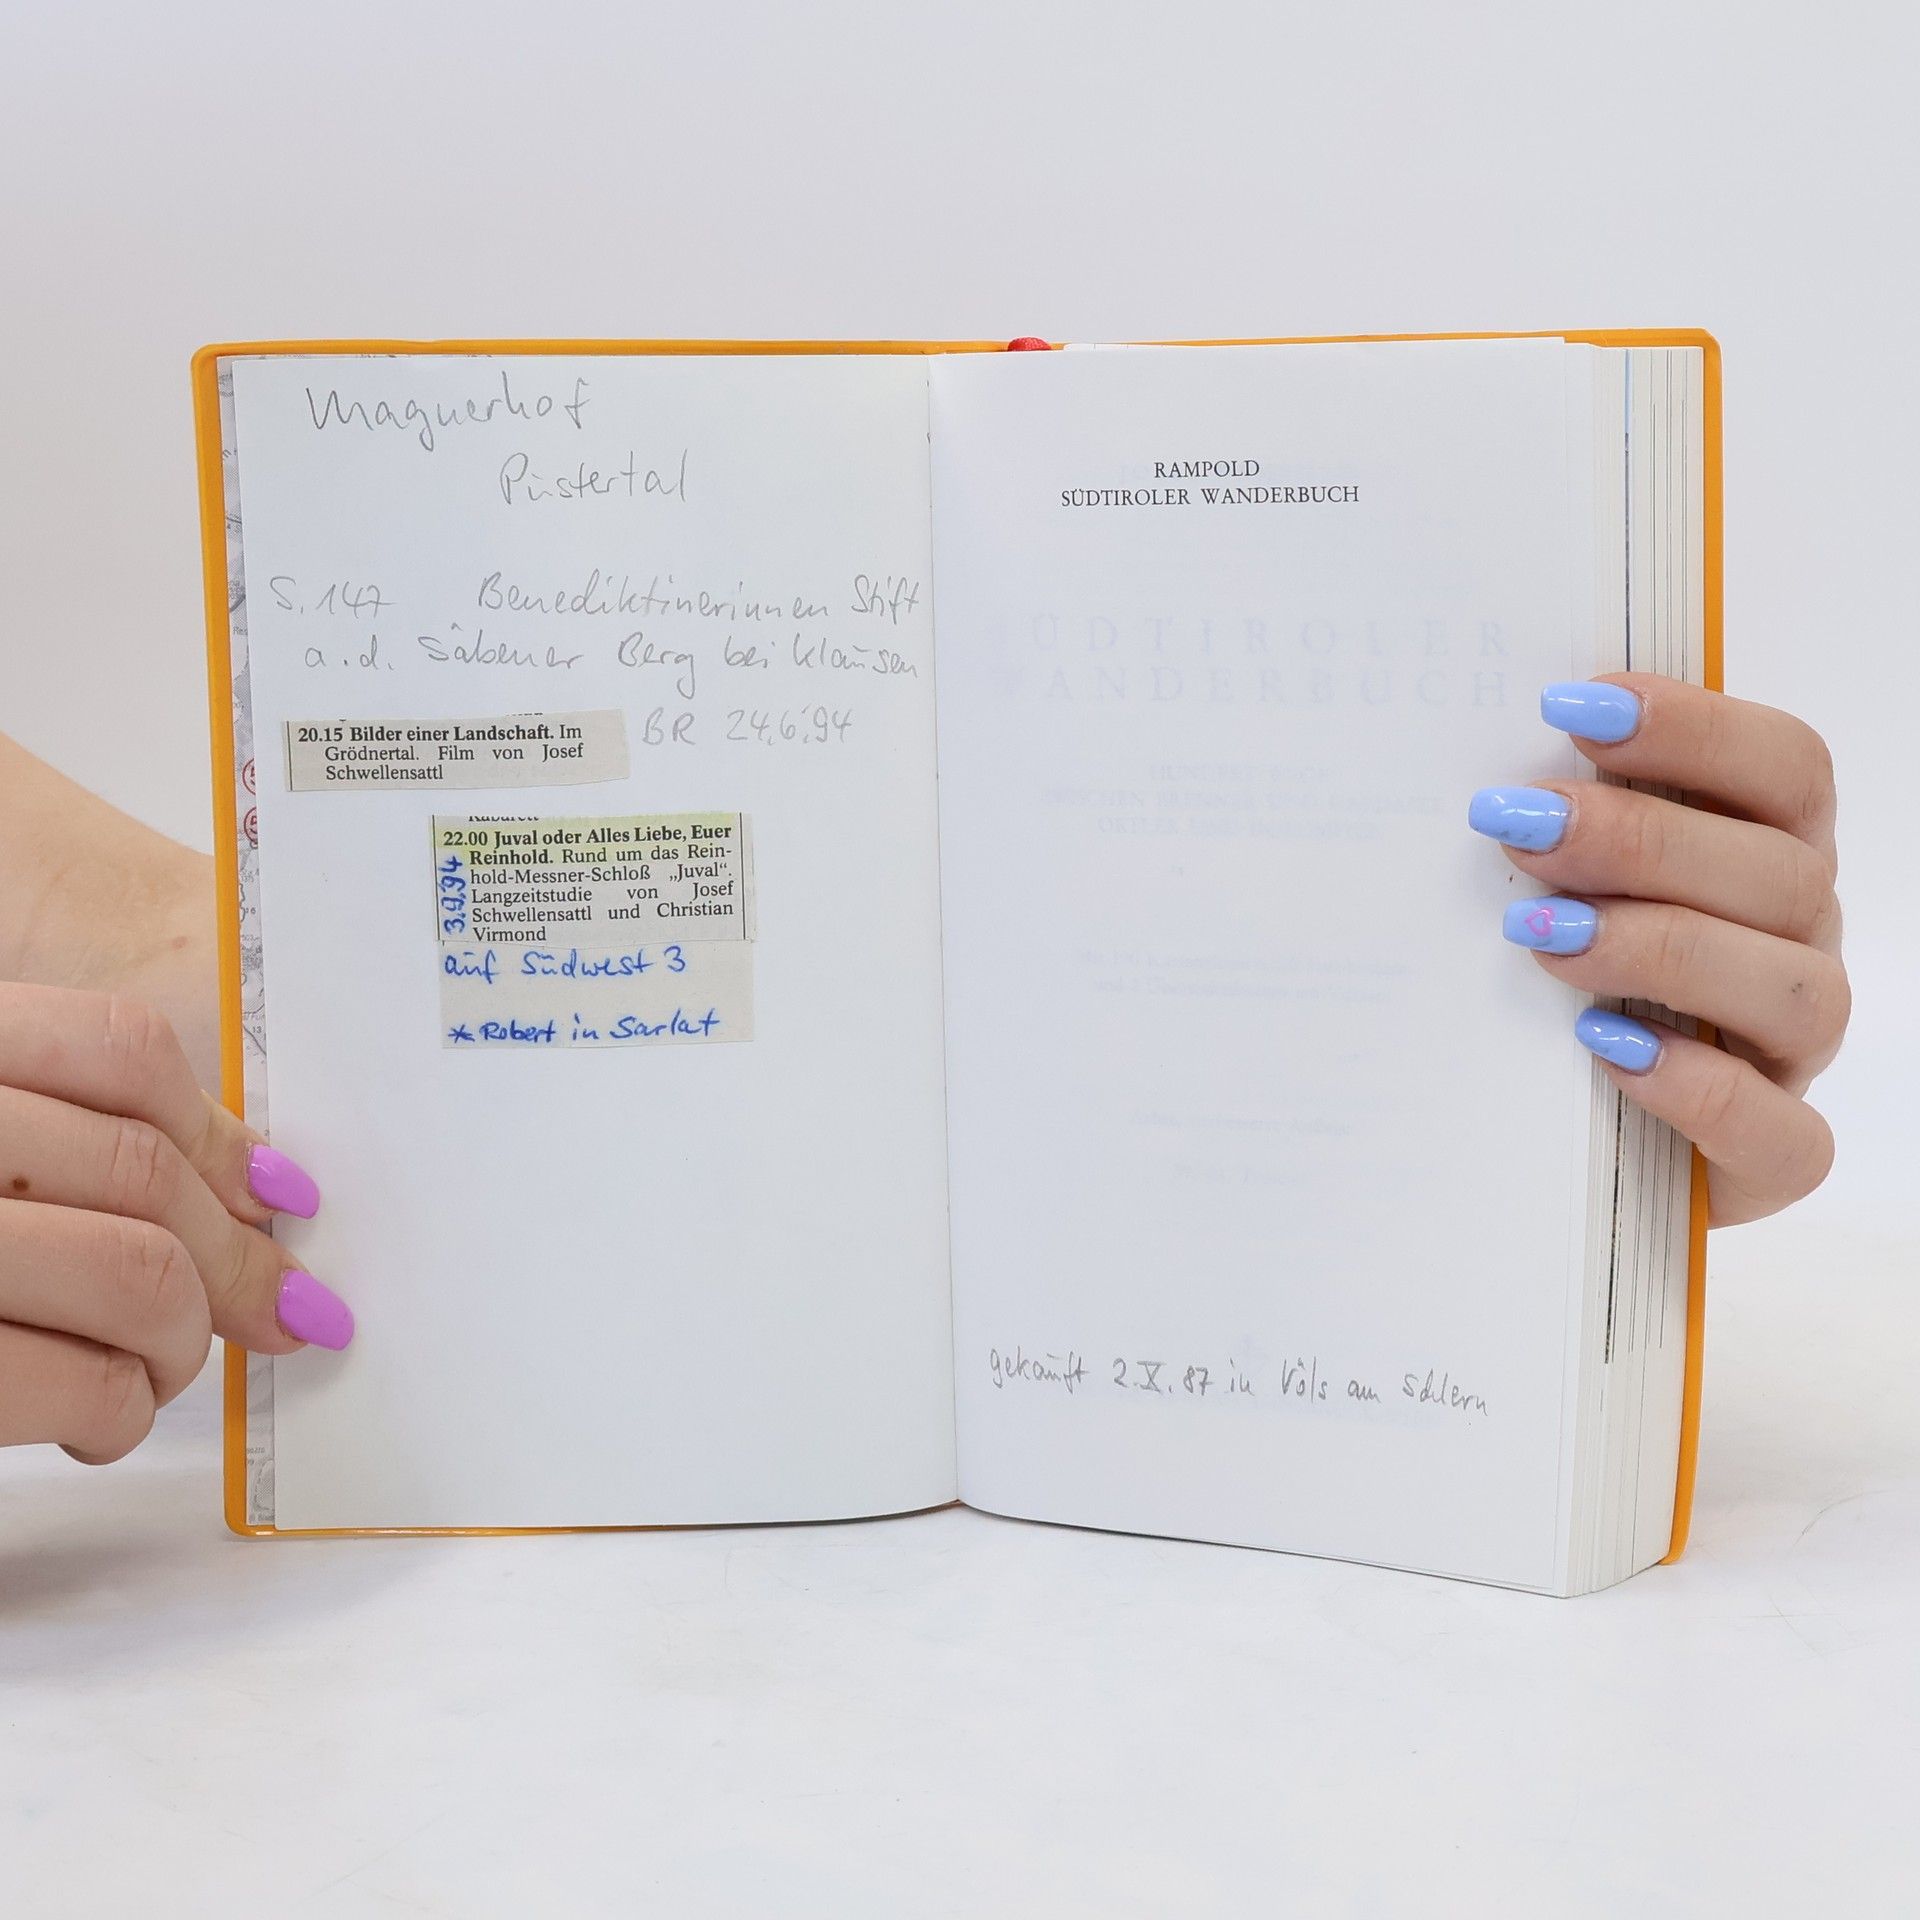 Magnerhof
Pustertal
S. 147 Benediktinerinnen Stift
a. d. Säbener Berg bei Klausen
20.15 Bilder einer Landschaft. Im
Grödnertal. Film von Josef
Schwellensattl
BR 24.6.94
Kabarett
22.00 Juval oder Alles Liebe, Euer
Reinhold. Rund um das Rein-
hold-Messner-Schloß „Juval“.
Langzeitstudie von Josef
Schwellensattl und Christian
Virmond
3.9.94
auf Südwest 3
* Robert in Sarlat
RAMPOLD
SÜDTIROLER WANDERBUCH
SÜDTIROLER
WANDERBUCH
gekauft 2.X.87 in Völs am Schlern